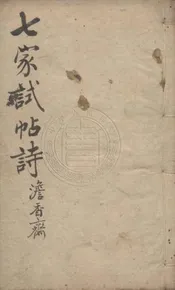 七家試帖詩
澹香齋